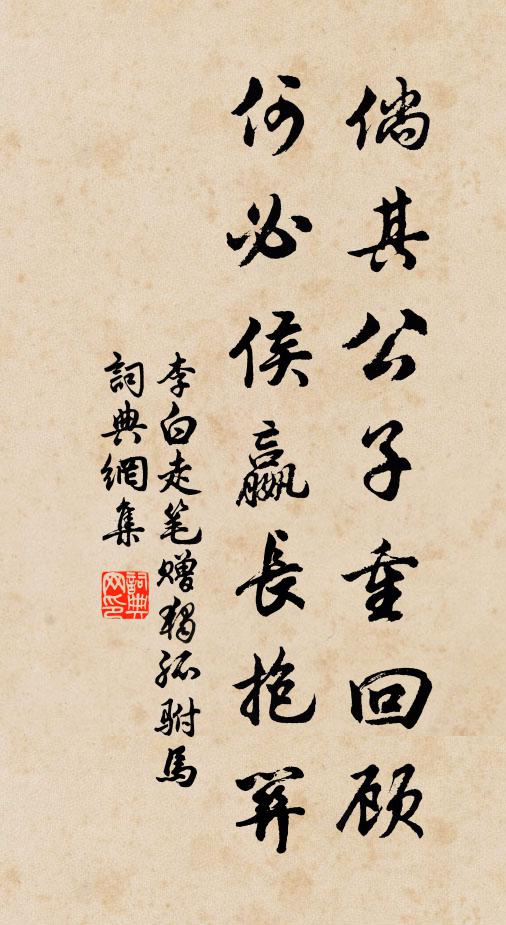 倘其公子重回顾
何必侯嬴長抱關
李白走笔赠獨孤駙馬
詞典網集
詞典网印